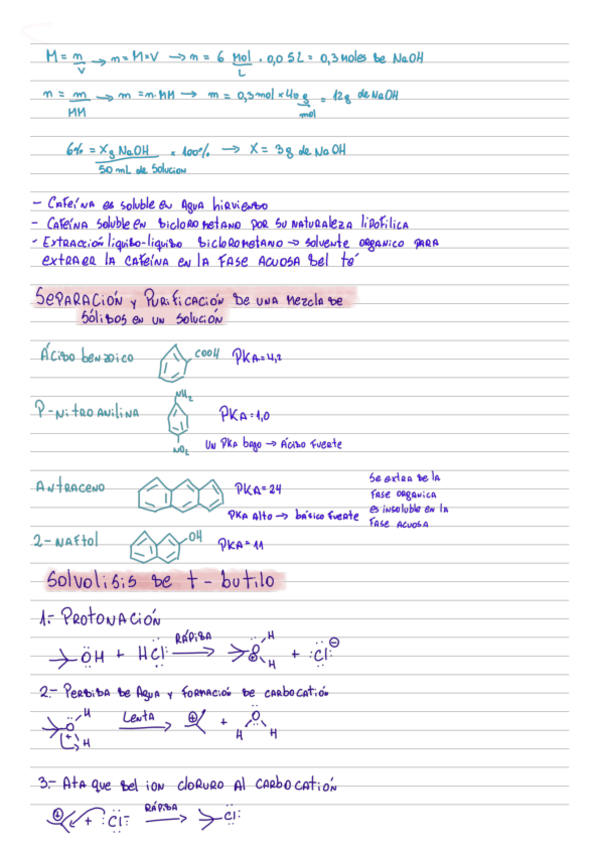 M = m/V → m = M·V → n = 6 mol/L · 0,05L = 0,3 moles de NaOH
n = m/MM → m = n·MM → m = 0,3 mol × 40 g/mol = 12g de NaOH
6% = X g NaOH / 50 mL de solucion × 100% → X = 3g de NaOH
- Cafeína es soluble en Agua hirviendo
- Cafeína soluble en diclorometano por su naturaleza lipofilica
- Extracción liquido-liquido diclorometano → solvente organico para
extraer la cafeína en la fase acuosa del té
Separación y Purificación de una mezcla de
sólidos en un solución
Ácido benzoico COOH PKA=4,2
P-nitroanilina NH2 PKA=1,0
NO2 Un PKA bajo → Ácido fuerte
Antraceno PKA=24
PKA Alto → básico fuerte
Se extrae de la
fase organica
es insoluble en la
fase acuosa
2-naftol OH PKA=11
Solvolisis de t-butilo
1.- Protonación
ÖH + HCl: RÁPIDA → O⊕ H H + :Cl:⊖
2.- Perdida de Agua y formación de carbocatión
O H (+) H Lenta → ⊕ + O H H
3.- Ataque del ion cloruro al carbocatión
⊕ + :Cl:− RÁPIDA → Cl: